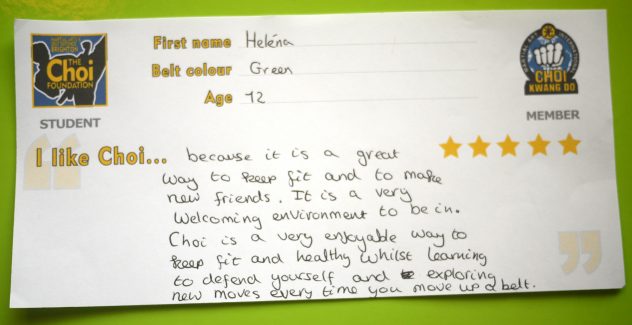 First name Heléna
Belt colour Green
Age 12
THE
Choi
FOUNDATION
STUDENT
CHOI
KWANG DO
MEMBER
I like Choi... because it is a great
way to keep fit and to make
new friends. It is a very
welcoming environment to be in.
Choi is a very enjoyable way to
keep fit and healthy whilst learning
to defend yourself and exploring
new moves every time you move up a belt.